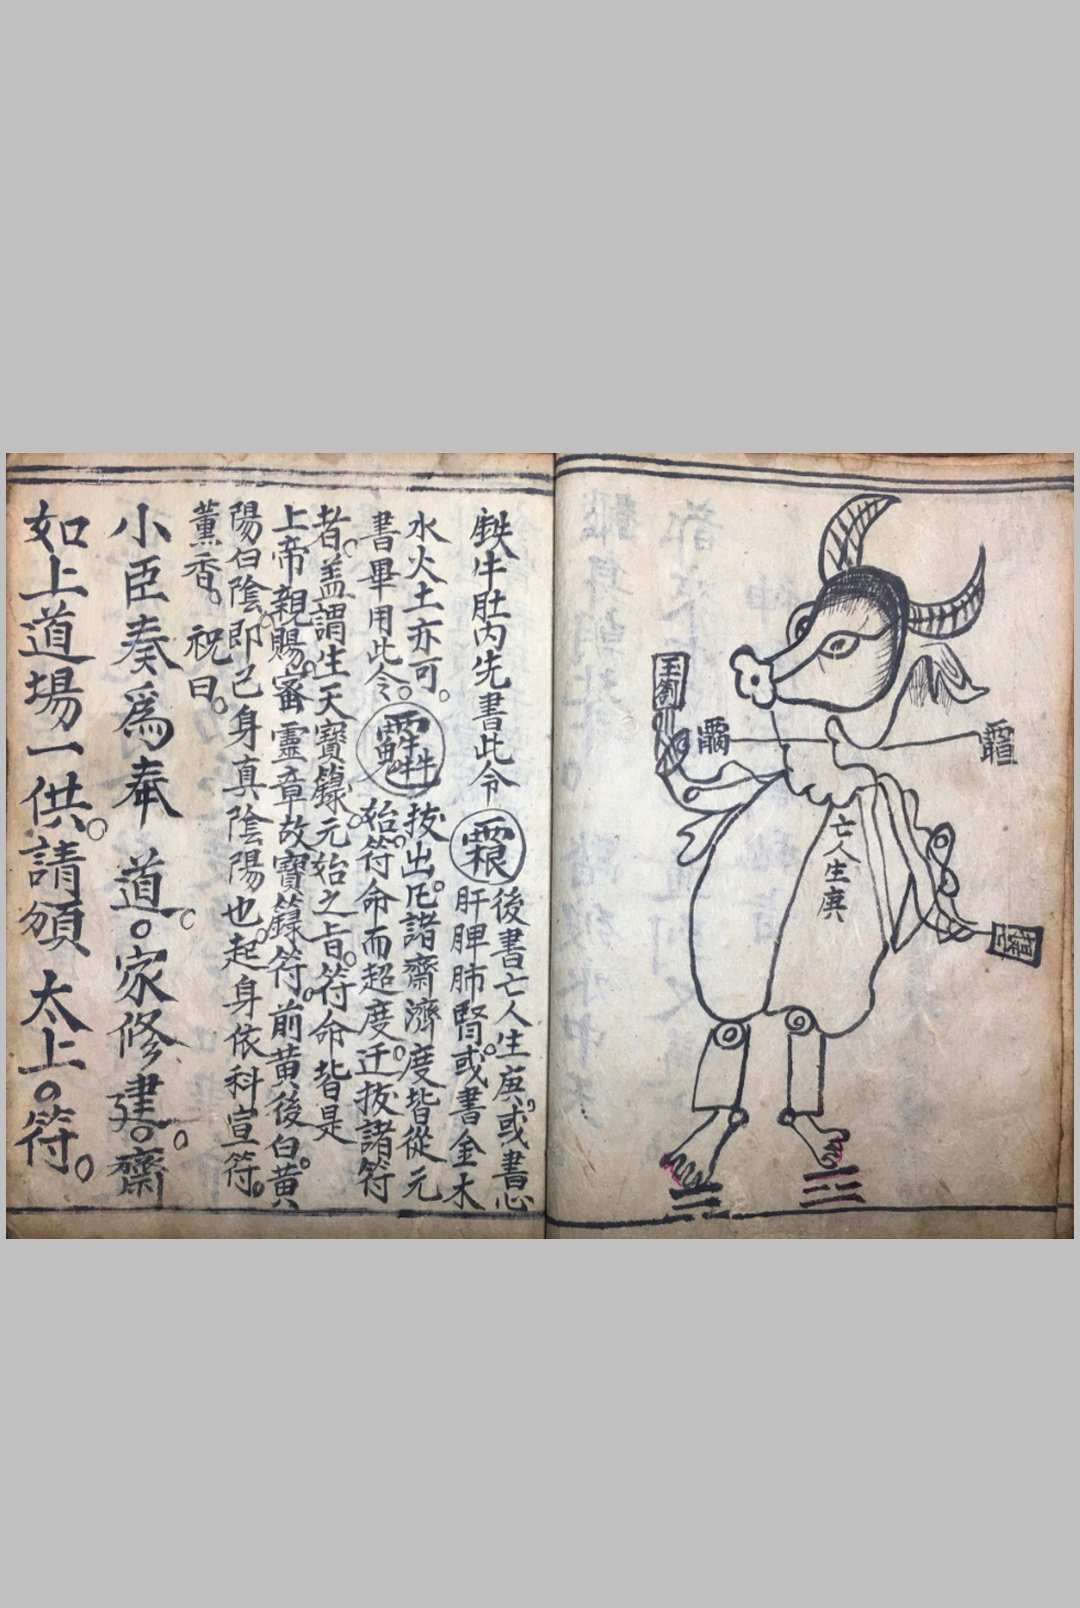 玉
亡人生庚
鉄牛肚内先書此令
後書亡人生庚。或書心
肝脾肺腎。或書金木
水火土亦可。
拔出厄。諸齋濟度皆從元
書畢用此令。
始。符命而超度。迁拔諸符
者。盖謂生天寶籙。元始之旨。符命皆是
上帝親賜。寚靈章故寶籙符。前黃後白。黃
陽白陰。即己身真陰陽也。起身依科宣符。
薰香。祝曰。
小臣奏爲奉道。家修建。齋
如上道場一供。請頒太上。符。